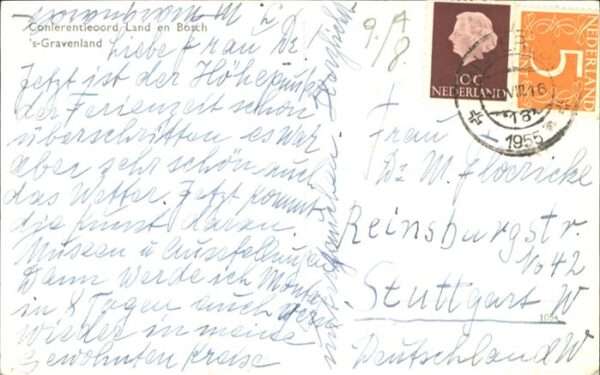 Conferentieoord Land en Bosch
's-Gravenland
Liebe Frau Dr!
Jetzt ist der Höhepunkt
der Ferienzeit schon
überschritten es war
aber sehr schön auch
das Wetter. Jetzt kommt
die Kunst daran.
Museen u Ausstellungen
Dann werde ich Montag
in 8 Tagen auch
wieder in meine
gewohnten Kreise
9.A
/8.
10 C
NEDERLAND
5
NEDERLAND
1955
Frau
Dr M. Floericke
Reinsburgstr.
No 42
Stuttgart W
Deutschland W